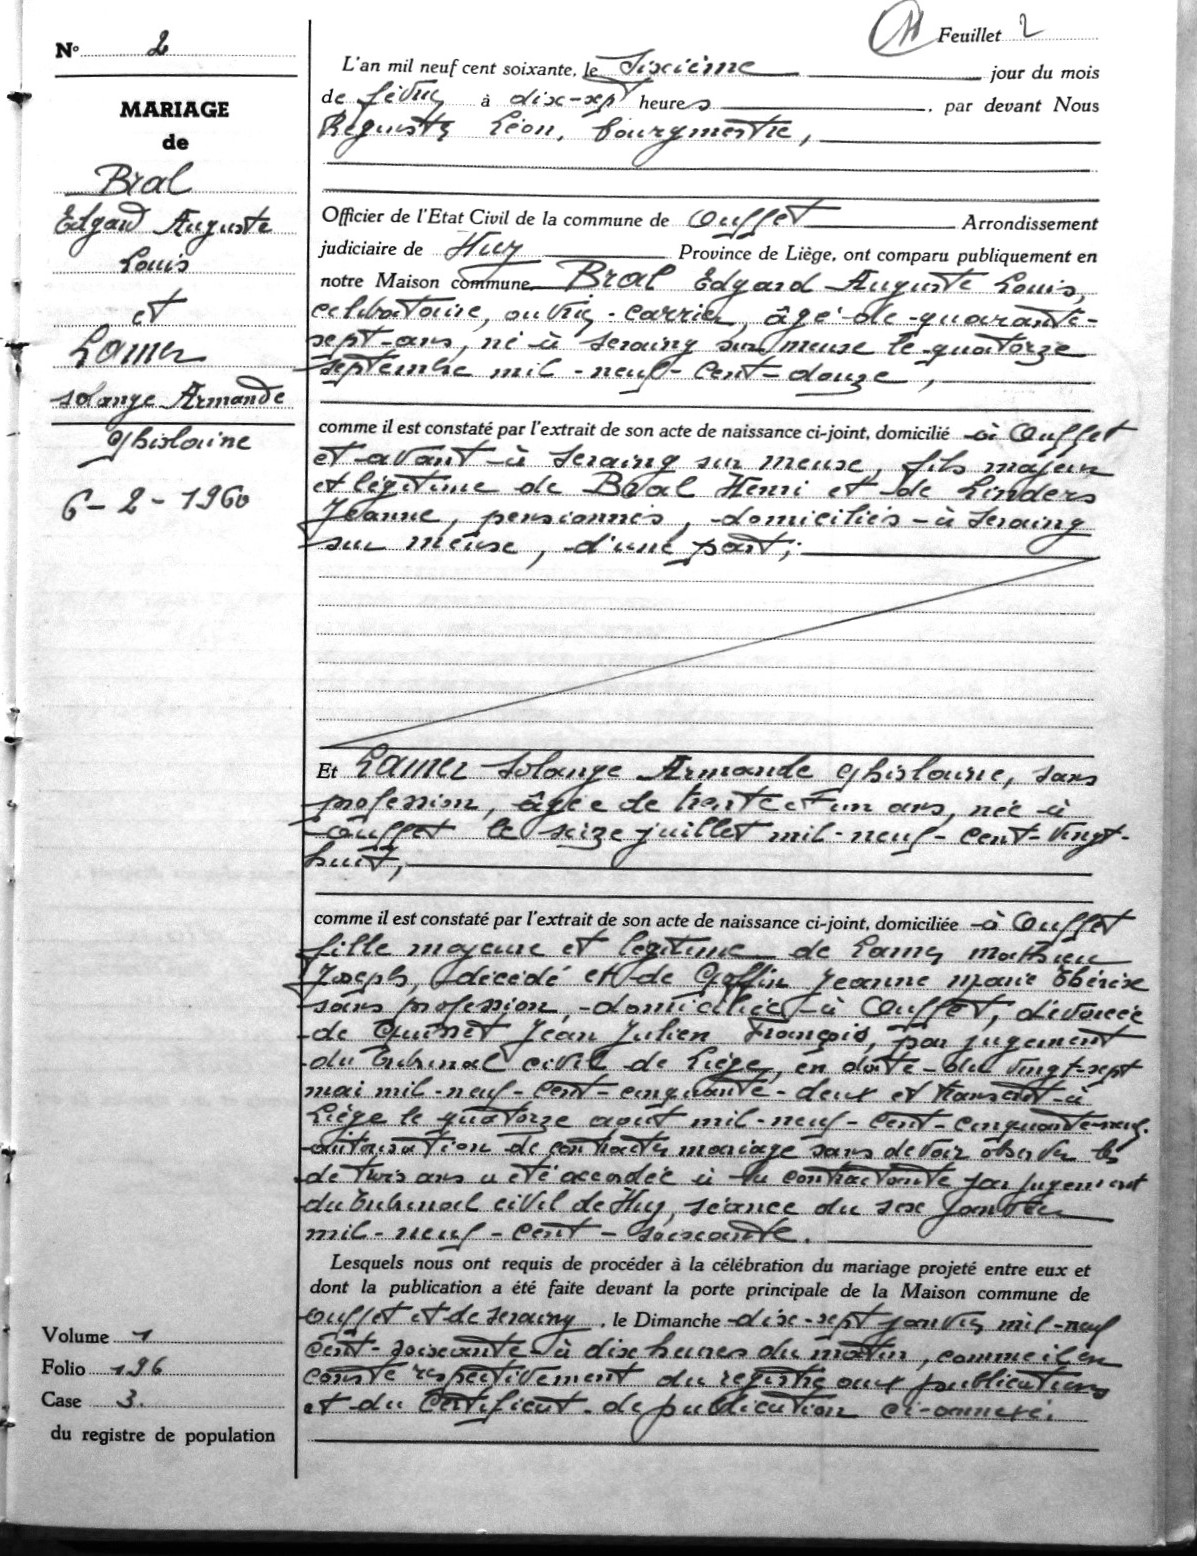 Feuillet 2
N° 2
MARIAGE
de
Bral
Edgard Auguste
Louis
et
Lamer
Solange Armande
Ghislaine
6-2-1960
L'an mil neuf cent soixante, le sixième jour du mois
de février à dix-sept heures, par devant Nous
Léon, bourgmestre,
Officier de l'Etat Civil de la commune de Ouffet Arrondissement
judiciaire de Huy Province de Liège, ont comparu publiquement en
notre Maison commune Bral Edgard Auguste Louis,
célibataire, ouvrier-carrier, âgé-de-quarante-
sept-ans, né-à Seraing sur meuse le quatorze
septembre mil-neuf-cent-douze,
comme il est constaté par l'extrait de son acte de naissance ci-joint, domicilié à Ouffet
et avant à Seraing sur meuse, fils majeur
et légitime de Bral Henri et de Linders
Jeanne, pensionnés, domiciliés-à Seraing
sur meuse, d'une part;
Et Lamer Solange Armande Ghislaine, sans
profession, âgée de trente et un ans, née à
Ouffet le seize juillet mil-neuf-cent-vingt-
huit,
comme il est constaté par l'extrait de son acte de naissance ci-joint, domiciliée à Ouffet
fille majeure et légitime de Lamer Mathieu
Joseph, décédé et de Goffin Jeanne Marie Thérèse
sans profession, domiciliée-à Ouffet, divorcée
de Quinet Jean Julien François, par jugement
du tribunal civil de Liège, en date du vingt-sept
mai mil-neuf-cent-cinquante-deux et transcrit-à
Liège le quatorze août mil-neuf-cent-cinquante-
autorisation de contracter mariage sans devoir observer les
de trois ans a été accordée à la contractante par jugement
du tribunal civil de Huy, séance du six janvier
mil-neuf-cent-soixante.
Lesquels nous ont requis de procéder à la célébration du mariage projeté entre eux et
dont la publication a été faite devant la porte principale de la Maison commune de
Ouffet et de Seraing, le Dimanche dix-sept janvier mil-neuf
cent-soixante à dix heures du matin, comme il en
conste respectivement du registre aux publications
et du Certificat de publication ci-annexé.
Volume 1
Folio 196
Case 3.
du registre de population